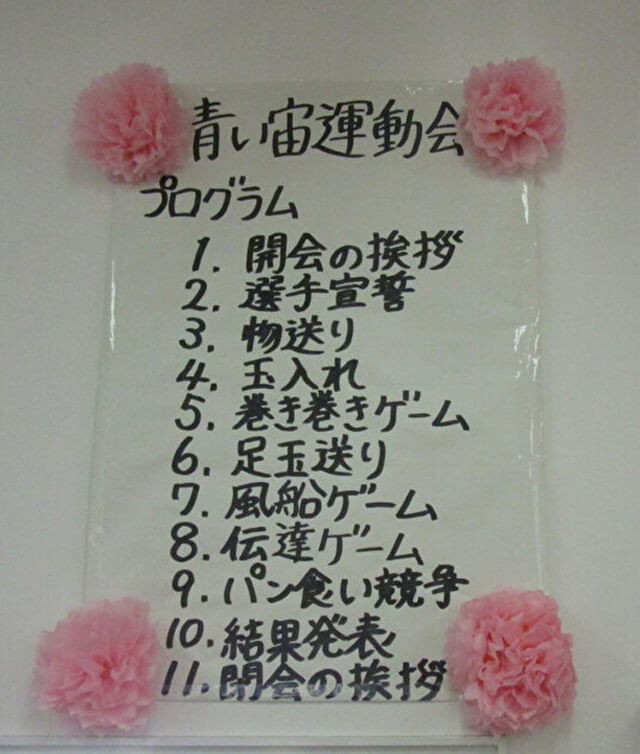 青い宙運動会
プログラム
1. 開会の挨拶
2. 選手宣誓
3. 物送り
4. 玉入れ
5. 巻き巻きゲーム
6. 足玉送り
7. 風船ゲーム
8. 伝達ゲーム
9. パン食い競争
10. 結果発表
11. 閉会の挨拶